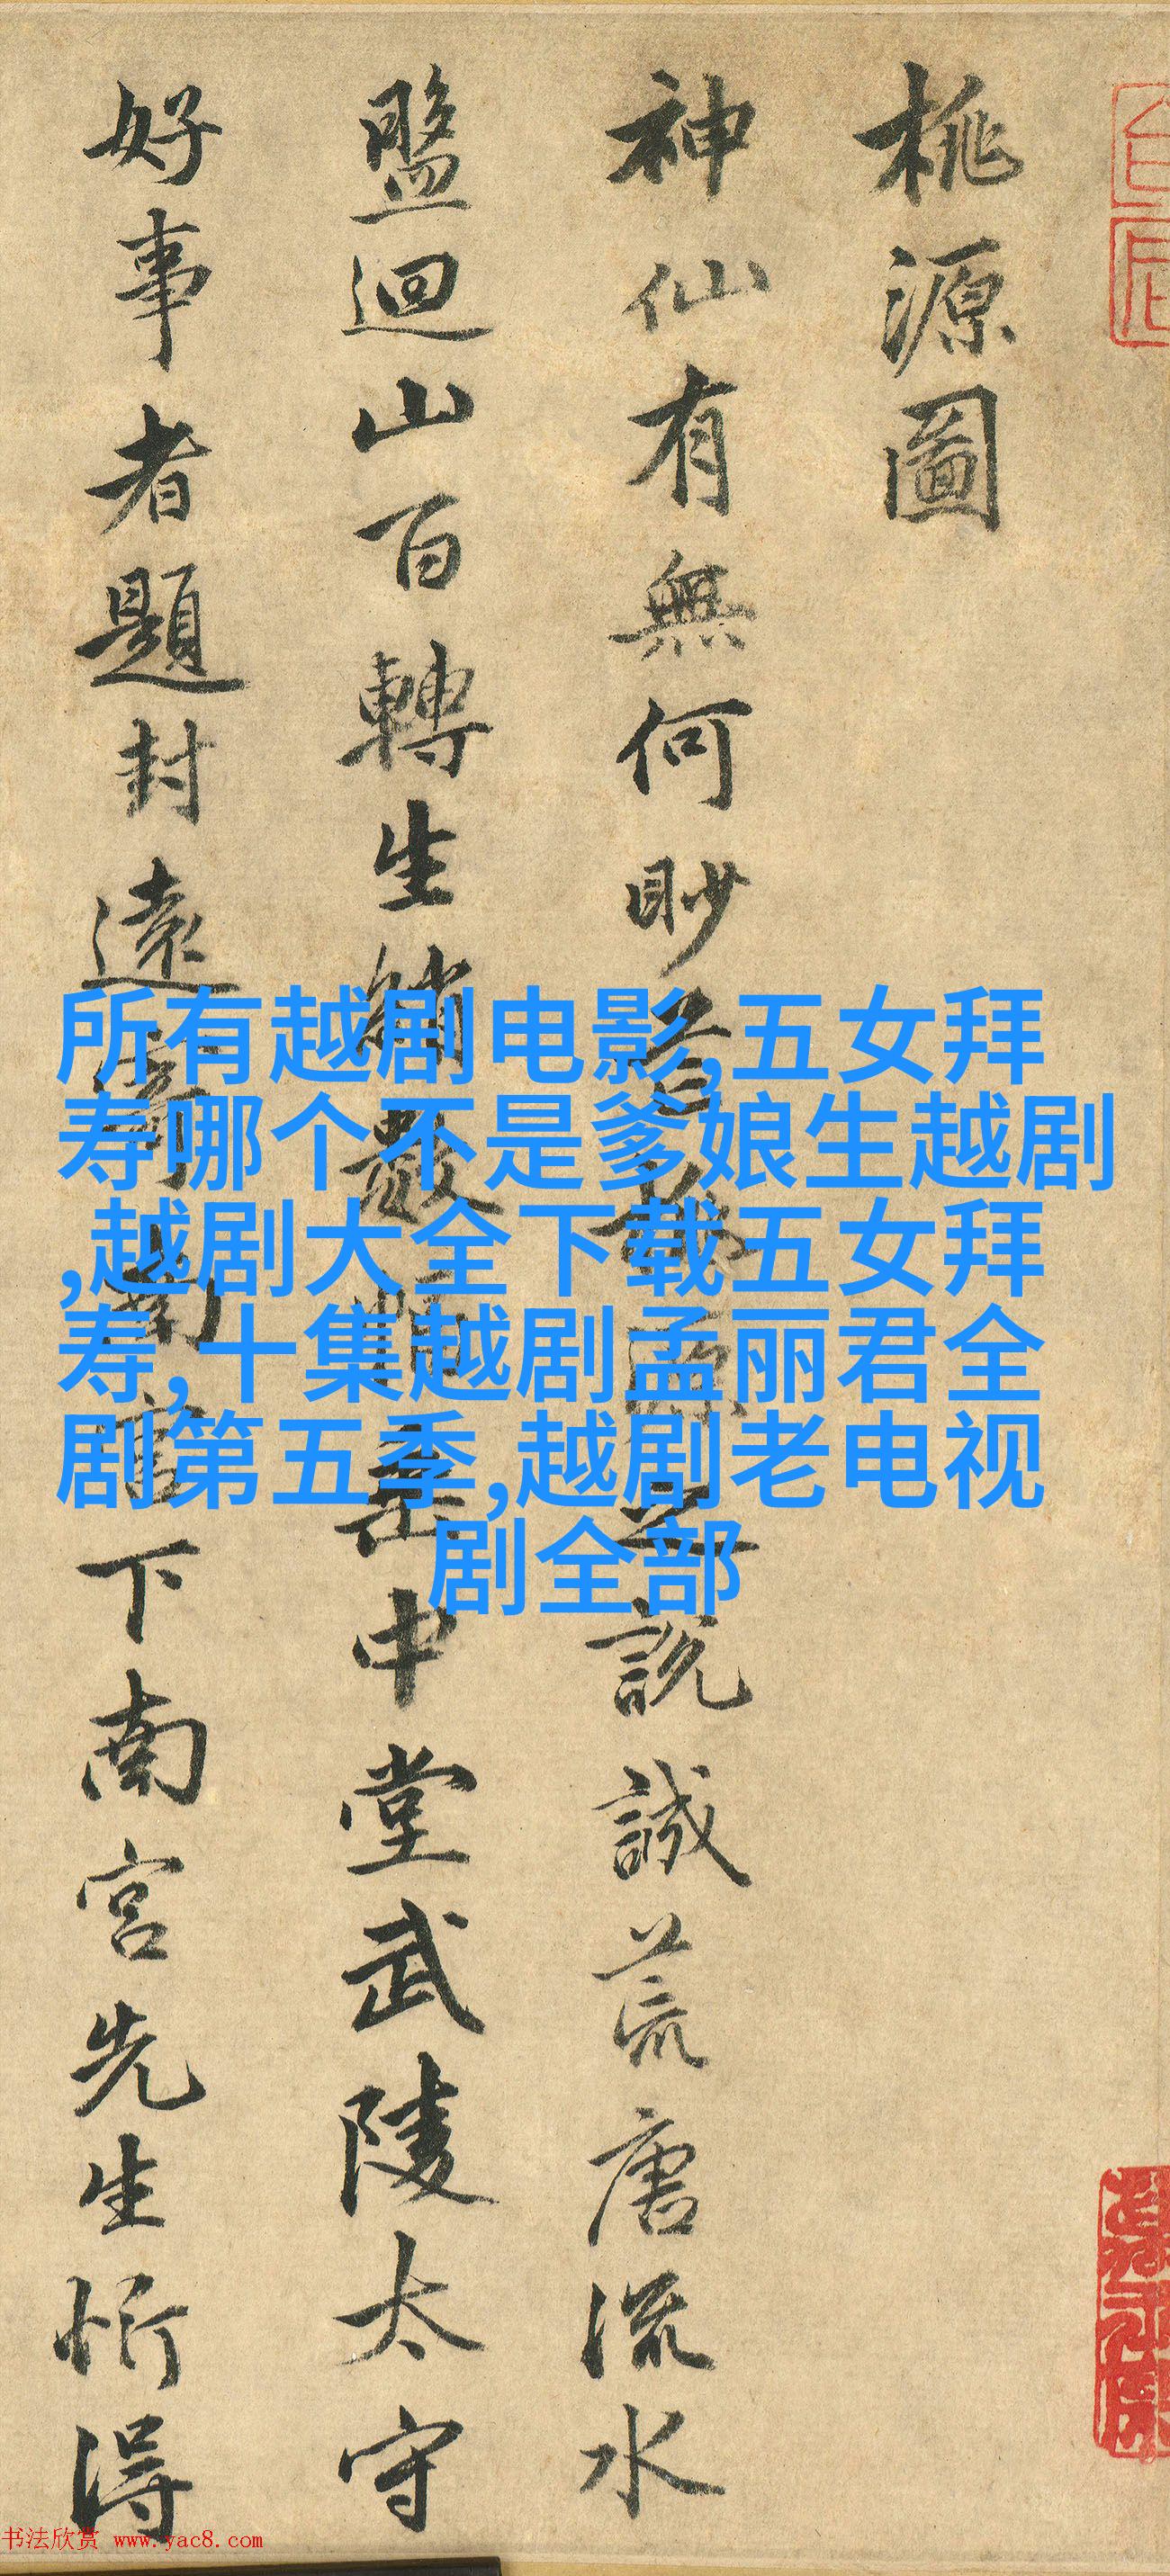 桃源圖
神仙有無何眇芒桃源之說誠荒唐流水
盤迴山百轉生綃數幅垂中堂武陵太守
好事者題封遠寄南宮下南宮先生忻得
所有越剧电影,五女拜
寿哪个不是爹娘生越剧
,越剧大全下载五女拜
寿,十集越剧孟丽君全
剧第五季,越剧老电视
剧全部
书法欣赏 www.yac8.com